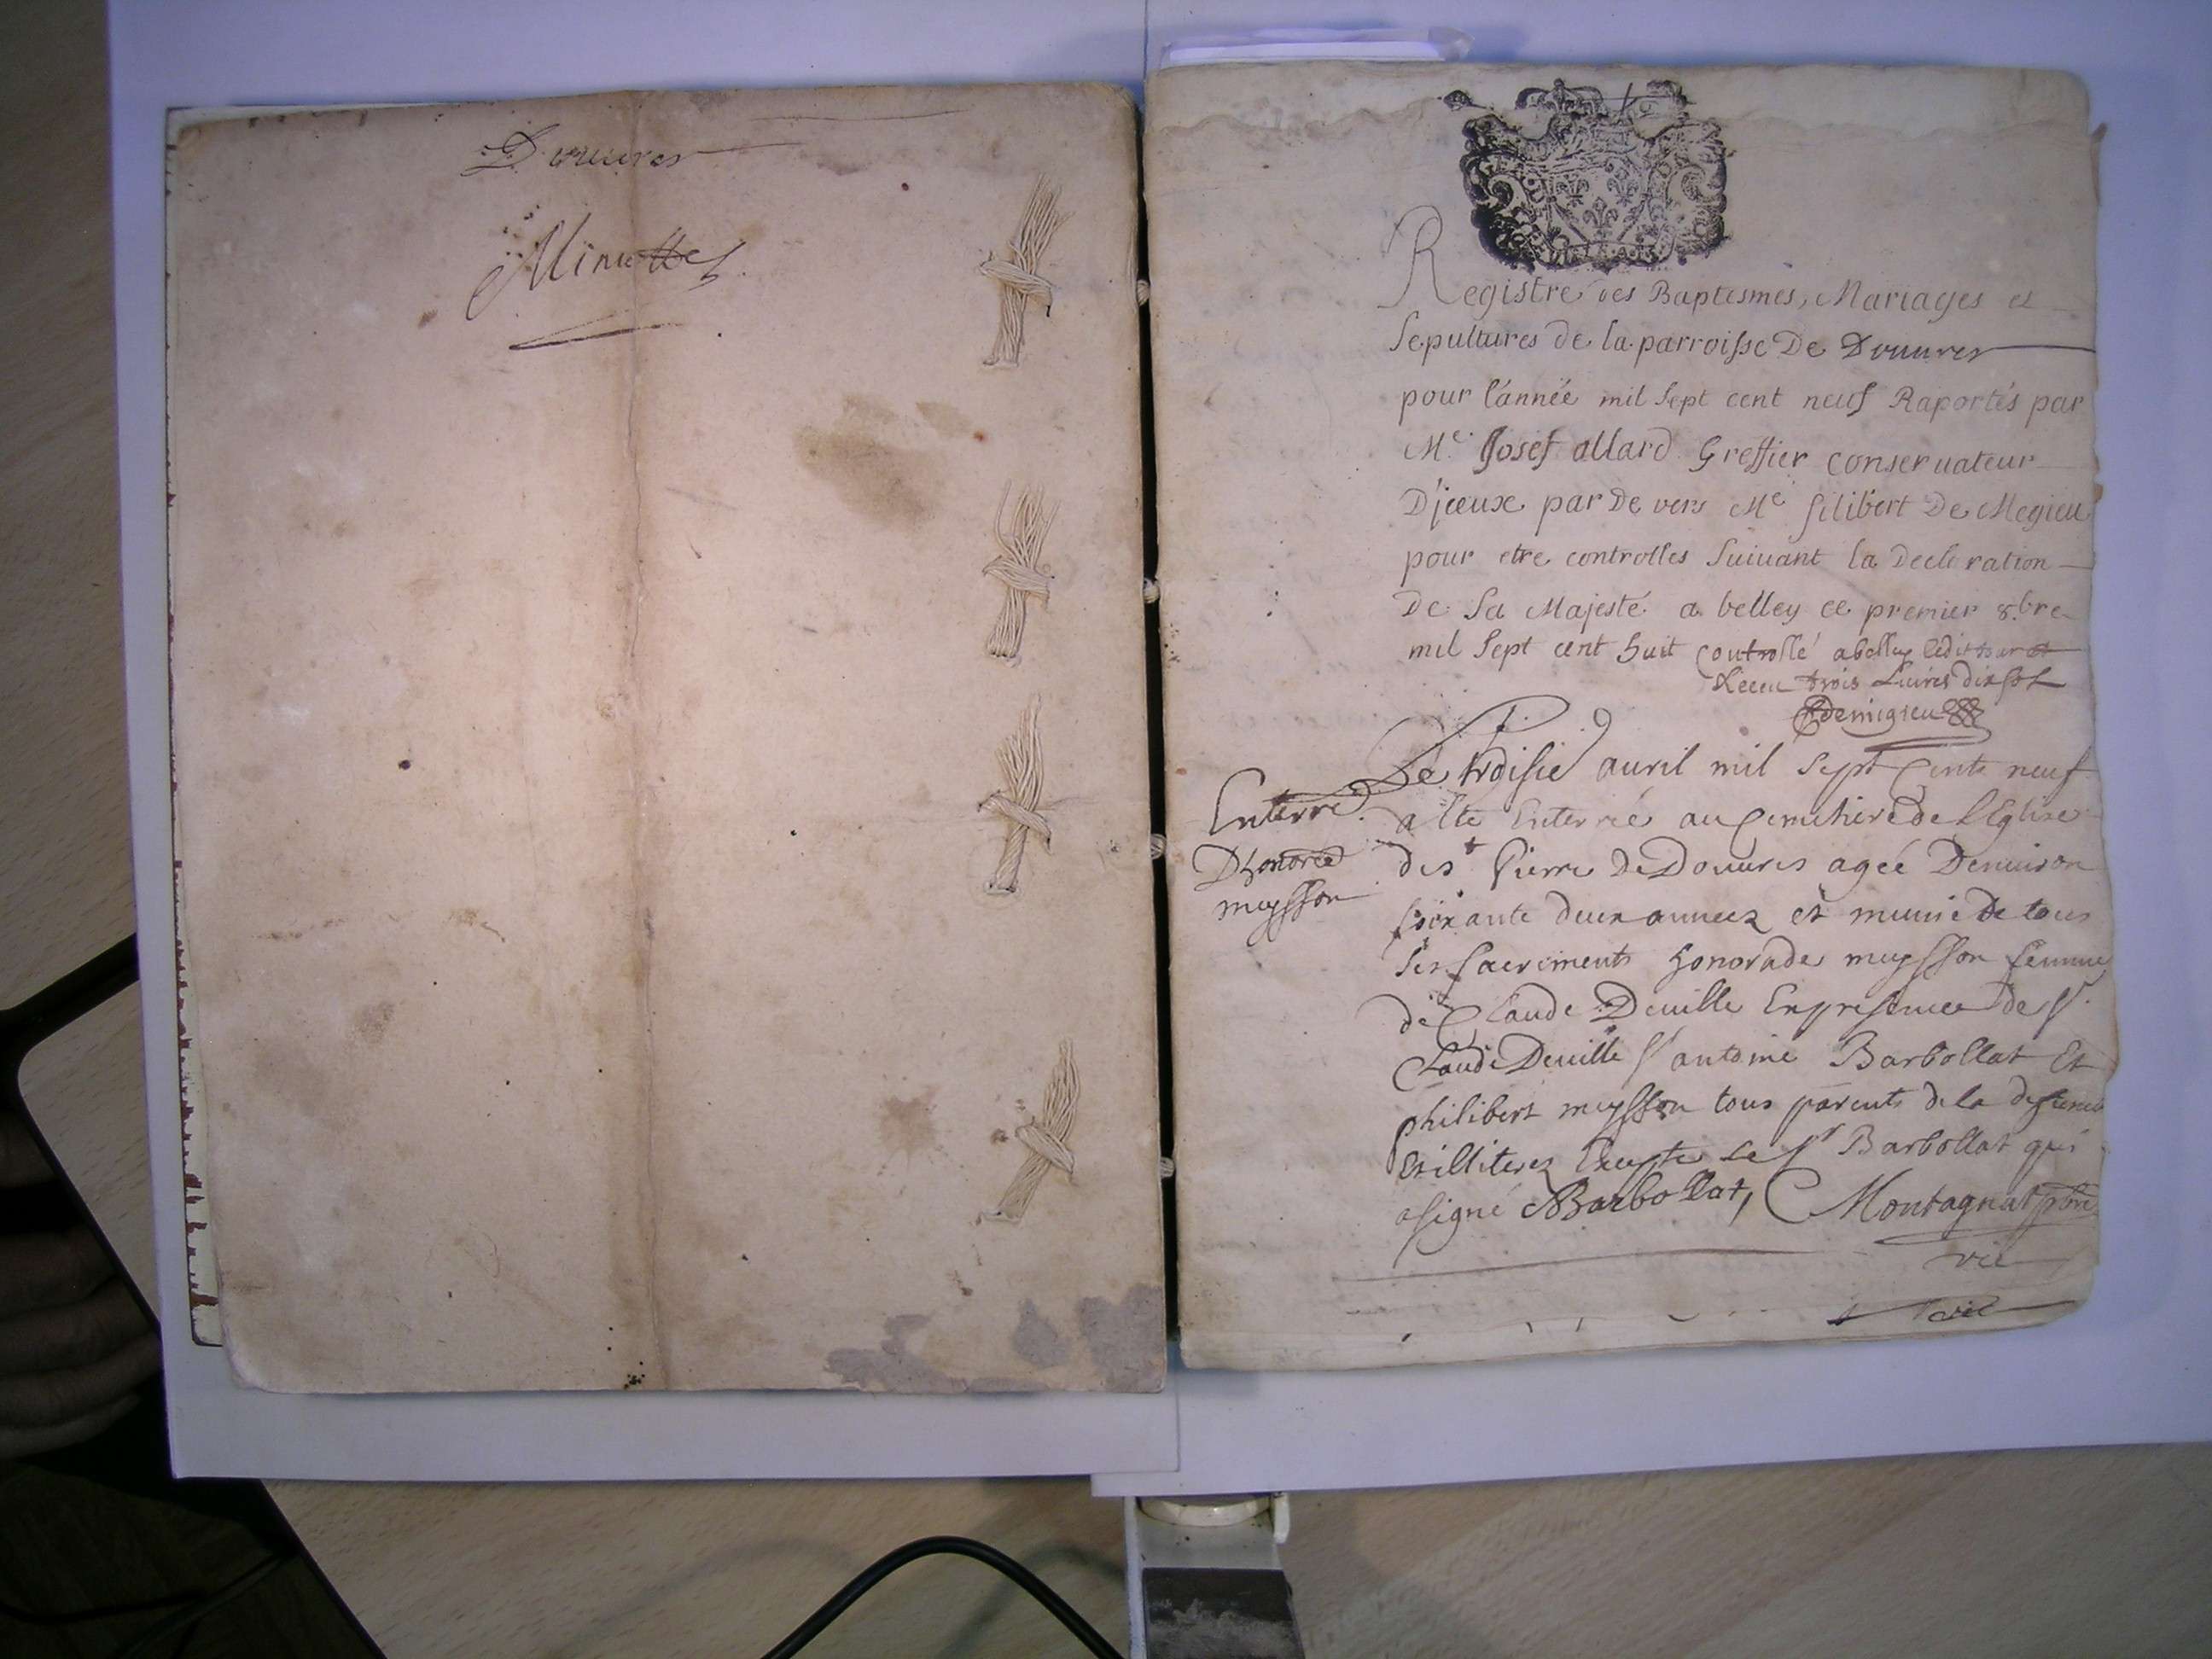 Douures
Minuttes
Registre des Baptesmes, Mariages et
Sepultures de la parroisse De Douures
pour l'année mil sept cent neuf Raportés par
Me Josef allard Greffier conseruateur
D'iceux par De vers Me filibert De Megieu
pour etre controlles suiuant la Decleration
De Sa Majesté a belley ce premier 8.bre
mil sept cent huit Controllé a belley ledit jour et
Receu trois Liures dix sols
Demigieu
Le troisie auril mil sept cents neuf
a été Enterrée au Cemithiere de l'Eglise
de st Pierre de Douures agée Denuiron
soixante deux anneez et munie de tous
ses sacrements honorade meysson femme
de Claude Deuille En presence de sr
Claude Deuille sr antoine Barbollat Et
philibert meysson tous parents de la defuncte
Et illiterez Excepte le sr Barbollat qui
a signé Barbollat, Montagnat pbre
vic
Enterre
D'honorée
meysson